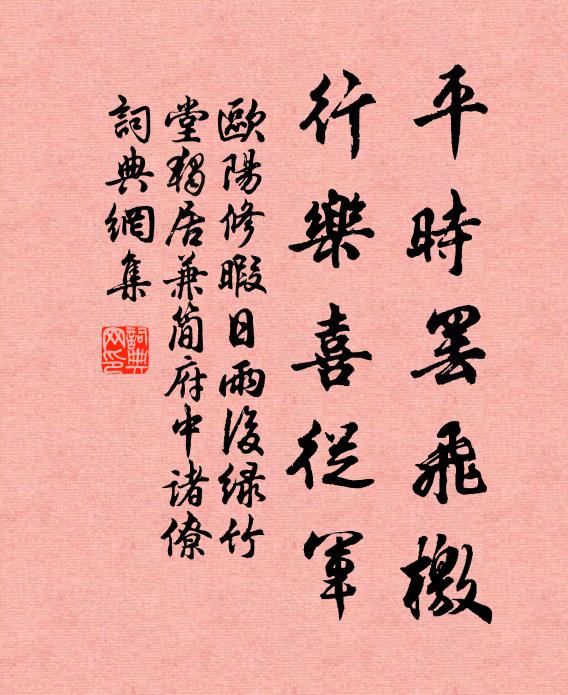 平時罢飛檄
行樂喜從軍
歐陽修暇日雨後緑竹
堂獨居兼簡府中諸僚
詞典網集
詞典
网印